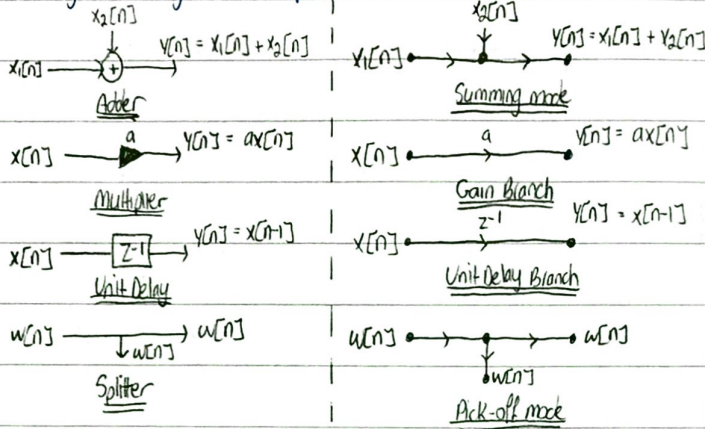 x₂[n]
x₁[n] + y[n] = x₁[n] + x₂[n]
Adder
a
x[n] y[n] = ax[n]
Multiplier
x[n] Z⁻¹ y[n] = x[n-1]
Unit Delay
w[n] w[n]
w[n]
Splitter
x₂[n]
x₁[n] y[n] = x₁[n] + x₂[n]
Summing mode
a
x[n] y[n] = ax[n]
Gain Branch
z⁻¹
x[n] y[n] = x[n-1]
Unit Delay Branch
w[n] w[n]
w[n]
Pick-off mode